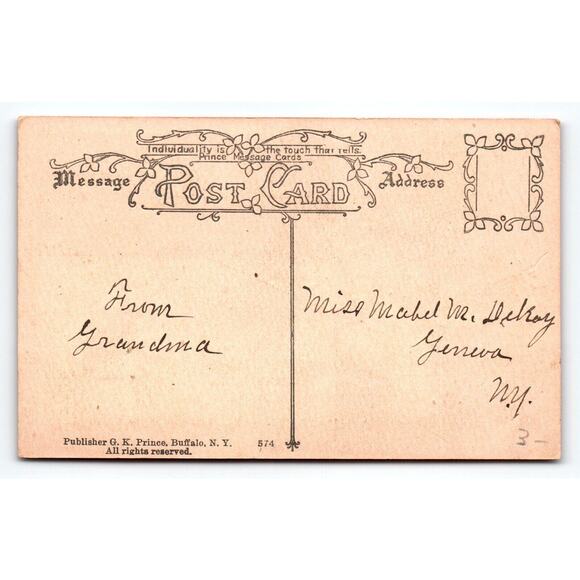 Individuality is the touch that tells.
Prince Message Cards
Message POST CARD Address
From
Grandma
Miss Mabel M. DeKay
Geneva
N.Y.
3-
Publisher G. K. Prince, Buffalo, N. Y. 574
All rights reserved.